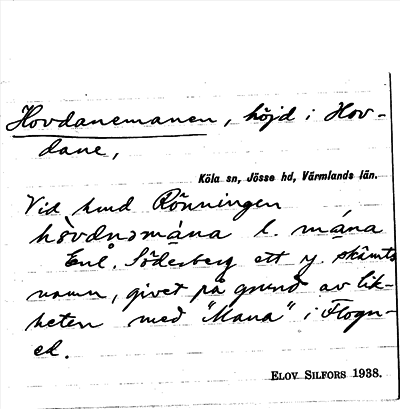 Hovdanemanen, höjd i Hov-
dane,
Köla sn, Jösse hd, Värmlands län.
Vid hmd Rönningen
hòvdnəmána l. mána
Enl. Söderberg ett y. skämts
namn, givet på grund av lik-
heten med "Mana" i Flogn-
ed.
ELOV SILFORS 1938.